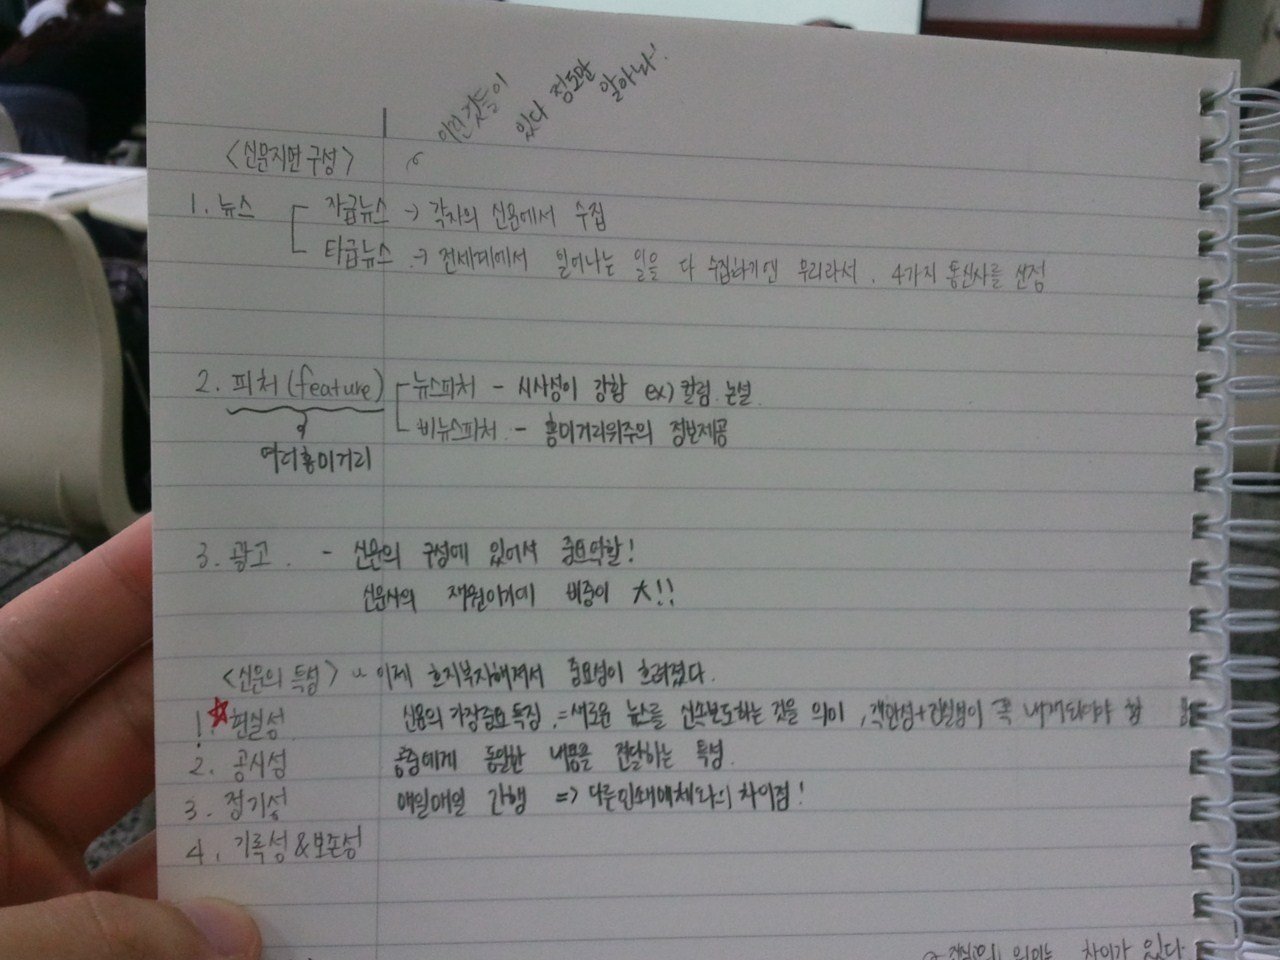 이런것들이 있다 정도만 알아놔!
<신문지면 구성>
1. 뉴스
자급뉴스 → 각자의 신문에서 수집
타급뉴스 → 전세계에서 일어나는 일을 다 수집하기엔 무리라서. 4가지 통신사를 선정
2. 피처(feature)
뉴스피처 - 시사성이 강함 ex) 칼럼. 논설.
비뉴스피처. - 흥미거리위주의 정보제공
여러흥미거리
3. 광고. - 신문의 구성에 있어서 중요역할!
신문사의 재원이기에 비중이 大!!
<신문의 특성> 이제 흐지부지해져서 중요성이 흐려졌다.
1. ☆현실성. 신문의 가장중요 특징. = 새로운 뉴스를 신속보도하는 것을 의미, 객관성+진실성이 꼭 내재되어야 함
2. 공시성 공중에게 동일한 내용을 전달하는 특성.
3. 정기성 매일매일 간행 => 다른인쇄매체와의 차이점!
4. 기록성&보존성
차이가 있다.